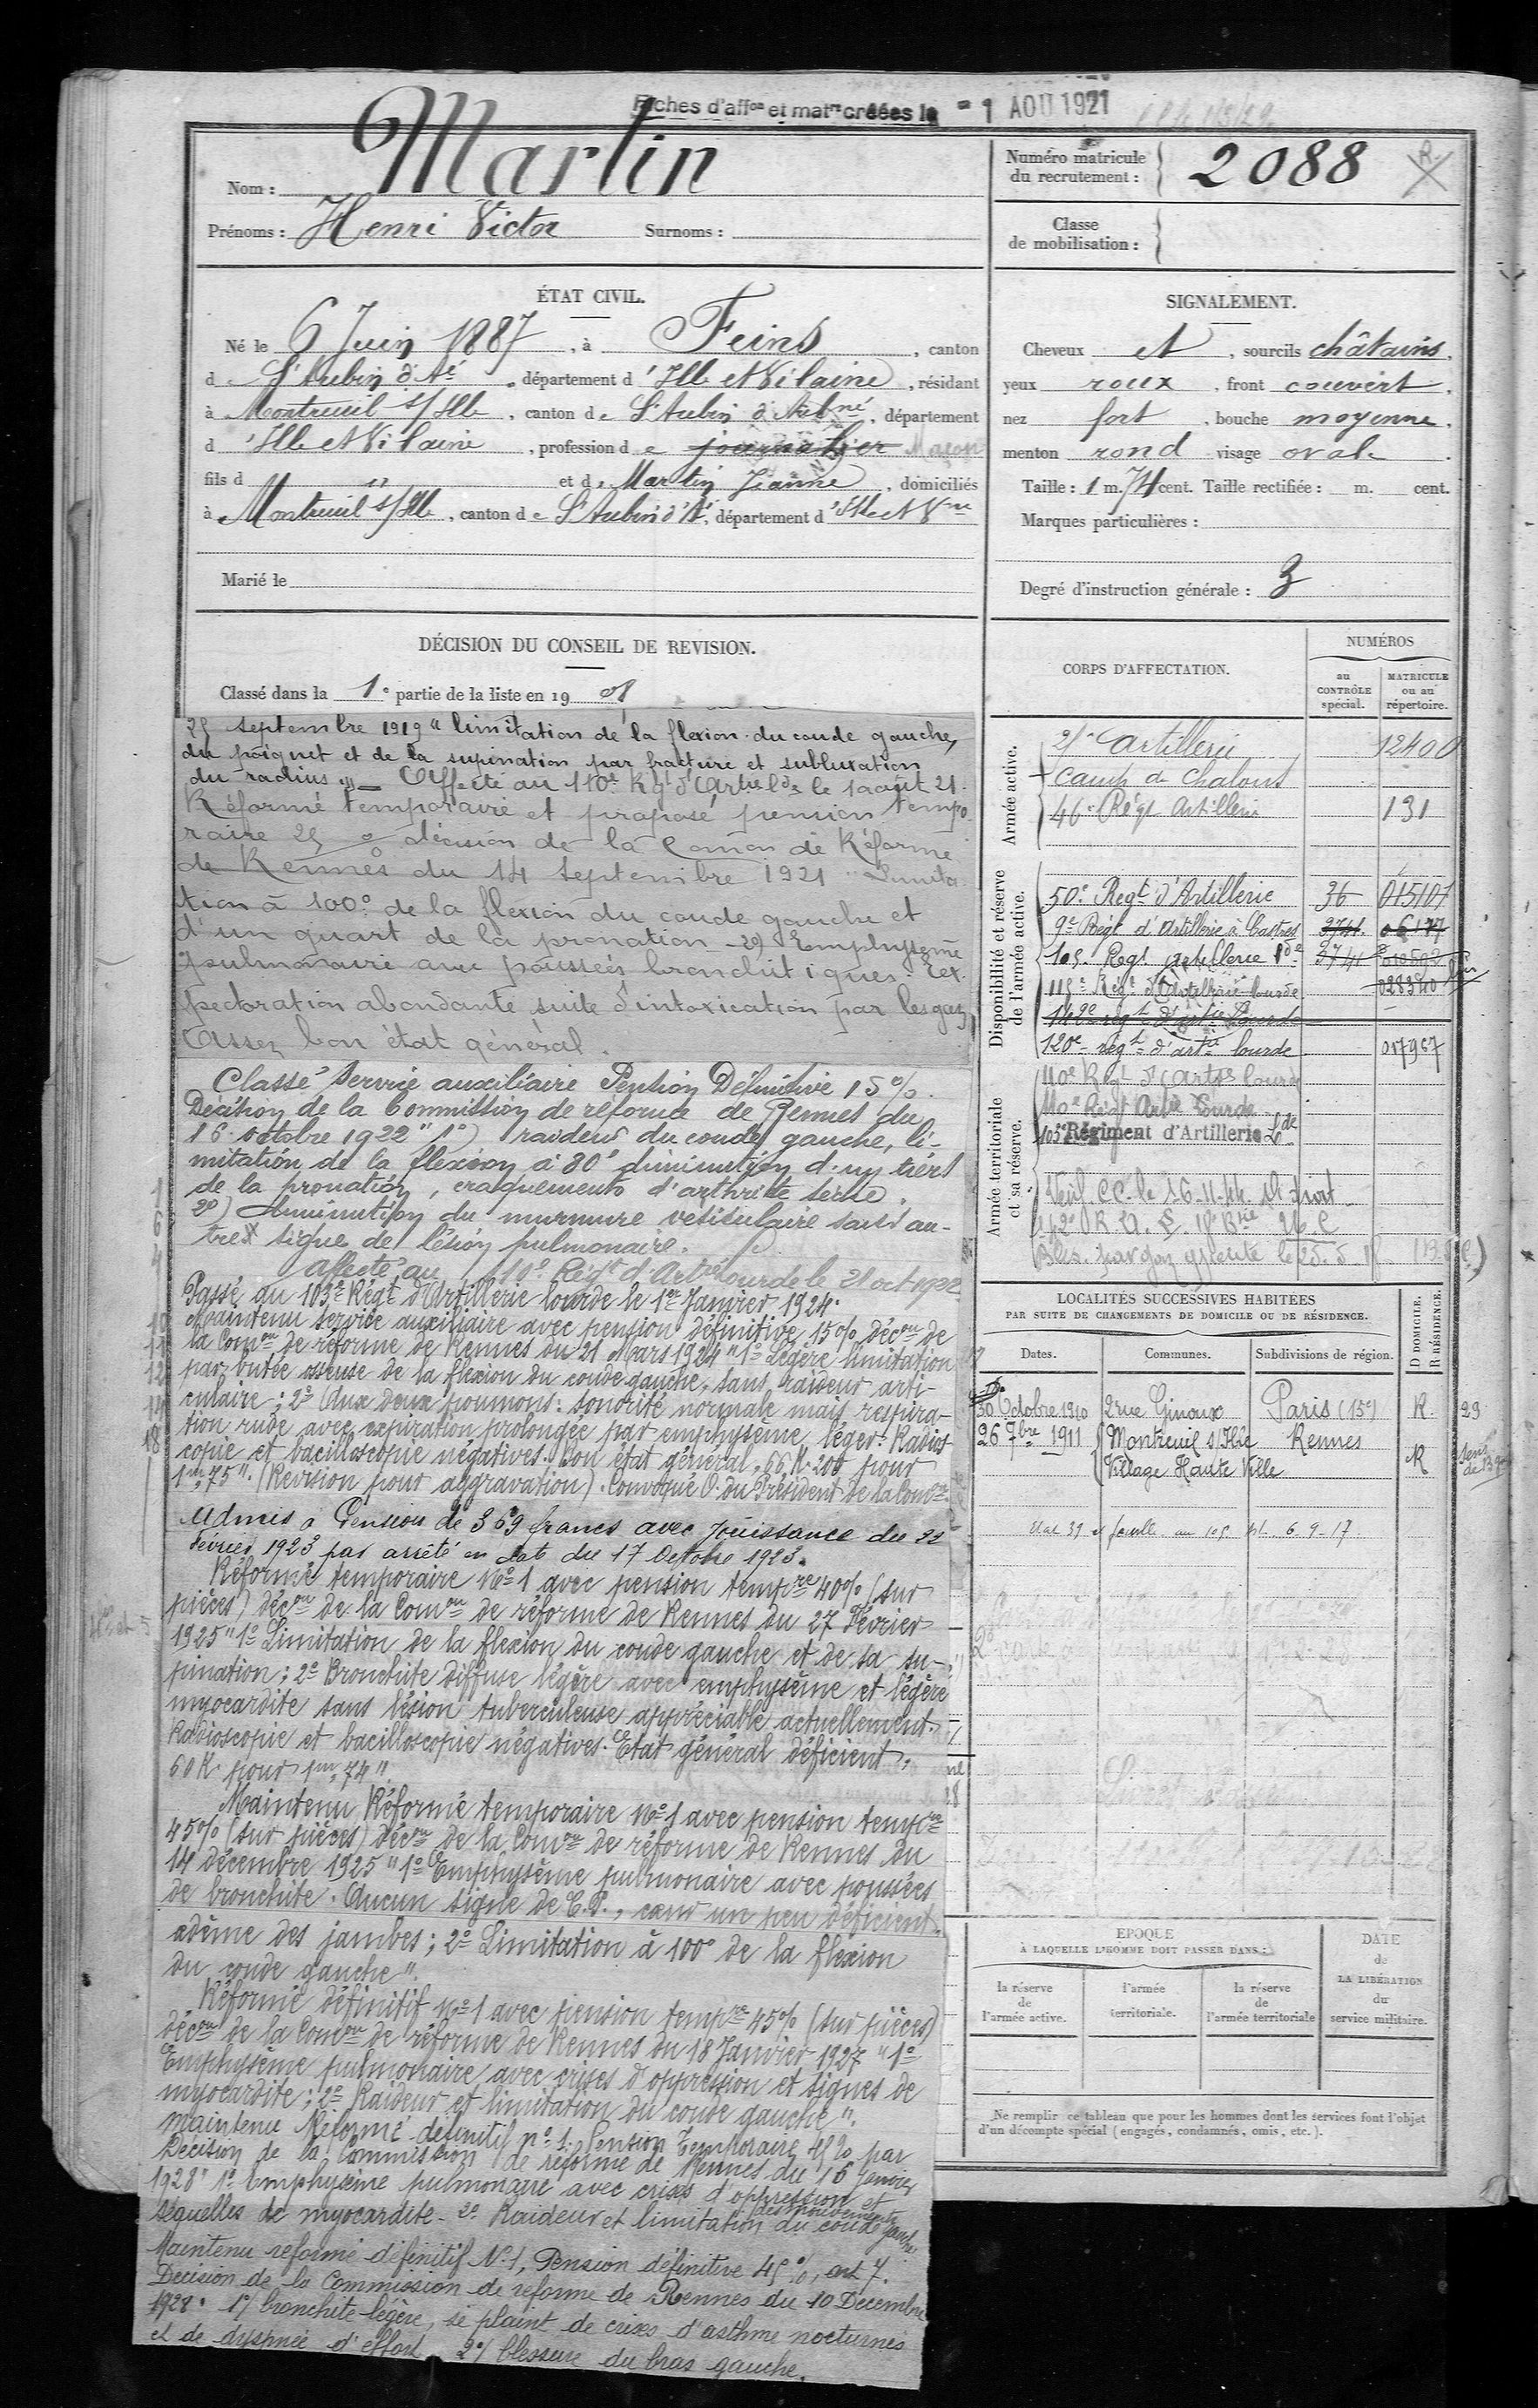 Fiches d'aff^on et mat^re créées le - 1 AOU 1921
Nom : Martin
Prénoms : Henri Victor Surnoms :
Numéro matricule du recrutement : 2088
R.
Classe de mobilisation :
ÉTAT CIVIL.
Né le 6 Juin 1887, à Feins, canton
d e St Aubin d'A^é, département d'Ille et Vilaine, résidant
à Montreuil s/Ille, canton de St Aubin d'Aubné, département
d'Ille et Vilaine, profession de journalier Maçon
fils d " et de Martin Jeanne, domiciliés
à Montreuil s/Ille, canton de St Aubin d'A^é, département d'Ille et V^ne
Marié le
SIGNALEMENT.
Cheveux et, sourcils châtains,
yeux roux, front couvert,
nez fort, bouche moyenne,
menton rond visage ovale.
Taille : 1 m. 74 cent. Taille rectifiée : m. cent.
Marques particulières :
Degré d'instruction générale : 3
DÉCISION DU CONSEIL DE REVISION.
Classé dans la 1e partie de la liste en 1908
25 septembre 1919 "limitation de la flexion du coude gauche,
du poignet et de la supination par fracture et subluxation
du radius". Affecté au 110e Rgt d'Art^ie l^de le 1 août 21.
Réformé temporaire et proposé pension tempo
raire 25 % décision de la Comon de Réforme
de Rennes du 14 septembre 1921 "Limita
tion à 100° de la flexion du coude gauche et
d'un quart de la pronation - 2°) Emphysème
pulmonaire avec poussées bronchitiques. Ex
pectoration abondante suite d'intoxication par les gaz
Assez bon état général.
Classé Service auxiliaire Pension Définitive 15%.
Décision de la Commission de réforme de Rennes du
16 octobre 1922 "1°) raideur du coude gauche, li-
mitation de la flexion à 80° diminution d'un tiers
de la pronation, craquements d'arthrite sèche.
2°) diminution du murmure vésiculaire sans au-
tres signe de lésion pulmonaire.
affecté au 110e Régt d'Art^ie lourde le 21 oct 1922
Passé au 103e Régt d'Artillerie lourde le 1er Janvier 1924.
Maintenu service auxiliaire avec pension définitive 15% déc^on de
la Com^on de réforme de Rennes du 21 Mars 1924 "1° Légère limitation
par butée osseuse de la flexion du coude gauche, sans raideur arti-
culaire ; 2° Aux deux poumons : sonorité normale mais respira-
tion rude avec expiration prolongée par emphysème léger. Radios-
copie et bacilloscopie négatives. Bon état général, 66 K. 200 pour
1m,75". (Révision pour aggravation). Convoqué O. du Président de la Com^on.
Admis à Pension de 369 francs avec Jouissance du 22
Février 1923 par arrêté en date du 17 Octobre 1923.
Réformé temporaire N° 1 avec pension temp^re 40% (sur
pièces) déc^on de la Com^on de réforme de Rennes du 27 Février
1925 "1° Limitation de la flexion du coude gauche et de sa su-
pination ; 2° Bronchite diffuse légère avec emphysème et légère
myocardite sans lésion tuberculeuse appréciable actuellement.
Radioscopie et bacilloscopie négatives. Etat général déficient,
60 K. pour 1m,74".
Maintenu Réformé temporaire N° 1 avec pension temp^re
45% (sur pièces) déc^on de la Com^on de réforme de Rennes du
14 décembre 1925 "1° Emphysème pulmonaire avec poussées
de bronchite. Aucun signe de C.P., cœur un peu déficient.
œdème des jambes ; 2° Limitation à 100° de la flexion
du coude gauche".
Réformé définitif N° 1 avec pension temp^re 45% (sur pièces)
déc^on de la Com^on de réforme de Rennes du 18 Janvier 1927 "1°
Emphysème pulmonaire avec crises d'oppression et signes de
myocardite ; 2° Raideur et limitation du coude gauche".
Maintenu Réformé définitif n° 1. Pension temporaire 45% par
Décision de la Commission de réforme de Rennes du 16 Janvier
1928 "1° Emphysème pulmonaire avec crises d'oppression et
séquelles de myocardite - 2° Raideur et limitation des mouvements du coude gauche
Maintenu réformé définitif N° 1, Pension définitive 45%, art 7.
Décision de la Commission de réforme de Rennes du 10 Décembre
1928. 1°/ bronchite légère, se plaint de crises d'asthme nocturnes
et de dyspnée d'effort 2°/ blessure du bras gauche.
CORPS D'AFFECTATION.
NUMÉROS
au CONTRÔLE spécial.
MATRICULE ou au répertoire.
Armée active.
Artillerie 12400
Camp de Chalons
46e Régt Artillerie 131
Disponibilité et réserve de l'armée active.
50e Regt d'Artillerie 36 015101
9e Régt d'Artillerie à Castres 2741
105 Regt Artillerie l^de 3741
115e Régt d'Artillerie lourde 028340
142e régt d'art^ie lourde
120e régt d'art^ie lourde 017967
Armée territoriale et sa réserve.
110e Régt d'Art^ie lourde
110e Régt Art^ie Lourde
103e Régiment d'Artillerie L^de
LOCALITÉS SUCCESSIVES HABITÉES
PAR SUITE DE CHANGEMENTS DE DOMICILE OU DE RÉSIDENCE.
Dates. Communes. Subdivisions de région. D DOMICILE. R RÉSIDENCE.
30 Octobre 1910 2 rue Ginoux Paris (15e) R. 29
26 7bre 1911 Montreuil s/Ille Rennes R
Village Haute Ville
EPOQUE
À LAQUELLE L'HOMME DOIT PASSER DANS :
la réserve de l'armée active.
l'armée territoriale.
la réserve de l'armée territoriale
DATE de LA LIBÉRATION du service militaire.
Ne remplir ce tableau que pour les hommes dont les services font l'objet
d'un décompte spécial (engagés, condamnés, omis, etc.).